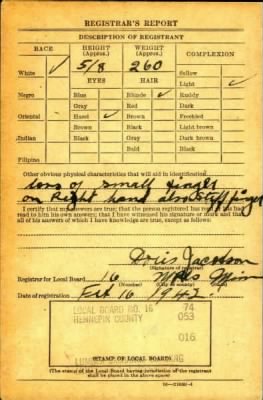 REGISTRAR'S REPORT
DESCRIPTION OF REGISTRANT
RACE HEIGHT (Approx.) WEIGHT (Approx.) COMPLEXION
White ✓ 5/8 260 Sallow
EYES HAIR Light ✓
Negro Blue Blonde ✓ Ruddy
Gray Red Dark
Oriental Hazel ✓ Brown Freckled
Brown Black Light brown
Indian Black Gray Dark brown
Bald Black
Filipino
Other obvious physical characteristics that will aid in identification
loss of small finger
on Right hand also stiff finger
I certify that my answers are true; that the person registered has read or has had
read to him his own answers; that I have witnessed his signature or mark and that
all of his answers of which I have knowledge are true, except as follows:
Doris Jackson
(Signature of registrar)
Registrar for Local Board 16 Mpls Minn
(Number) (City or county) (State)
Date of registration Feb 16 1942
LOCAL BOARD NO. 16 74
HENNEPIN COUNTY 053
016
(STAMP OF LOCAL BOARD)
(The stamp of the Local Board having jurisdiction of the registrant
shall be placed in the above space)